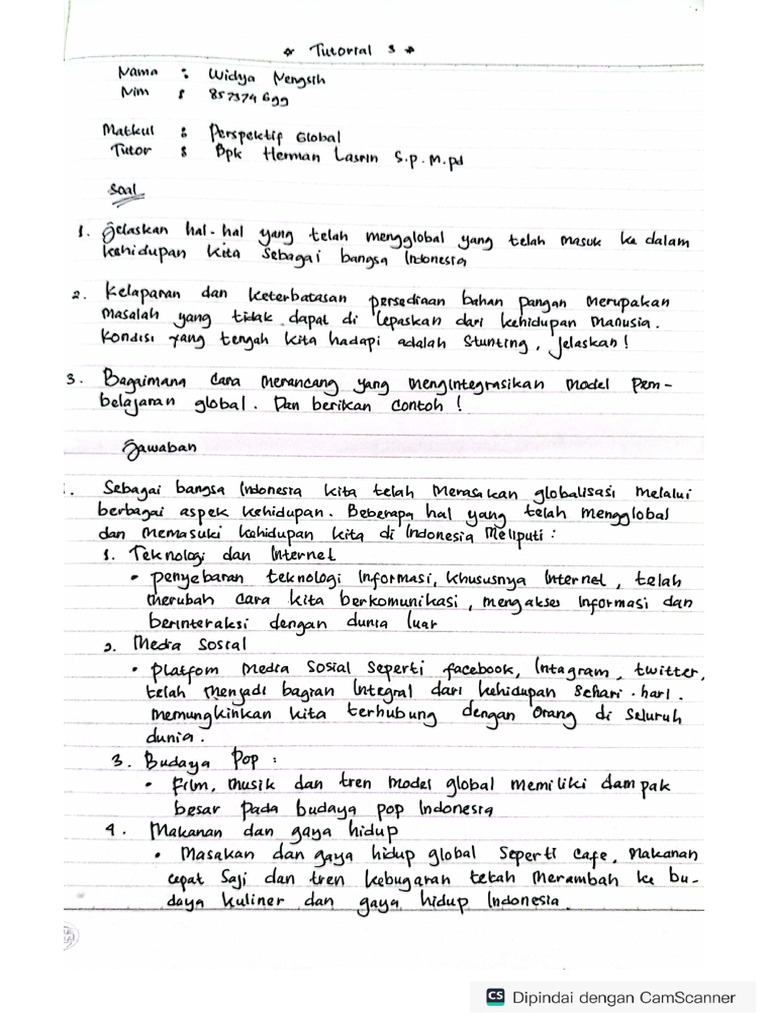 * Tutorial 3 *
Nama : Widya Nengsih
Nim : 857374699
Matkul : Perspektif Global
Tutor : Bpk Herman Lasrin S.p.M.pd
Soal
1. Jelaskan hal-hal yang telah mengglobal yang telah masuk ke dalam
kehidupan kita sebagai bangsa Indonesia
2. Kelaparan dan keterbatasan persediaan bahan pangan merupakan
masalah yang tidak dapat di lepaskan dari kehidupan manusia.
Kondisi yang tengah kita hadapi adalah Stunting, jelaskan!
3. Bagaimana cara merancang yang mengintegrasikan model Pem-
belajaran global. Dan berikan contoh!
Jawaban
. Sebagai bangsa Indonesia kita telah merasakan globalisasi melalui
berbagai aspek kehidupan. Beberapa hal yang telah mengglobal
dan memasuki kehidupan kita di Indonesia meliputi :
1. Teknologi dan Internet
• penyebaran teknologi informasi, khususnya Internet, telah
merubah cara kita berkomunikasi, mengakses informasi dan
berinteraksi dengan dunia luar
2. Media Sosial
• platfom media sosial seperti facebook, Intagram, twitter,
telah menjadi bagian Integral dari kehidupan sehari-hari.
memungkinkan kita terhubung dengan orang di seluruh
dunia.
3. Budaya Pop :
• Film, musik dan tren model global memiliki dampak
besar pada budaya pop Indonesia
4. Makanan dan gaya hidup
• Masakan dan gaya hidup global seperti cafe, makanan
cepat saji dan tren kebugaran tetah merambah ke bu-
daya kuliner dan gaya hidup Indonesia.
CS Dipindai dengan CamScanner